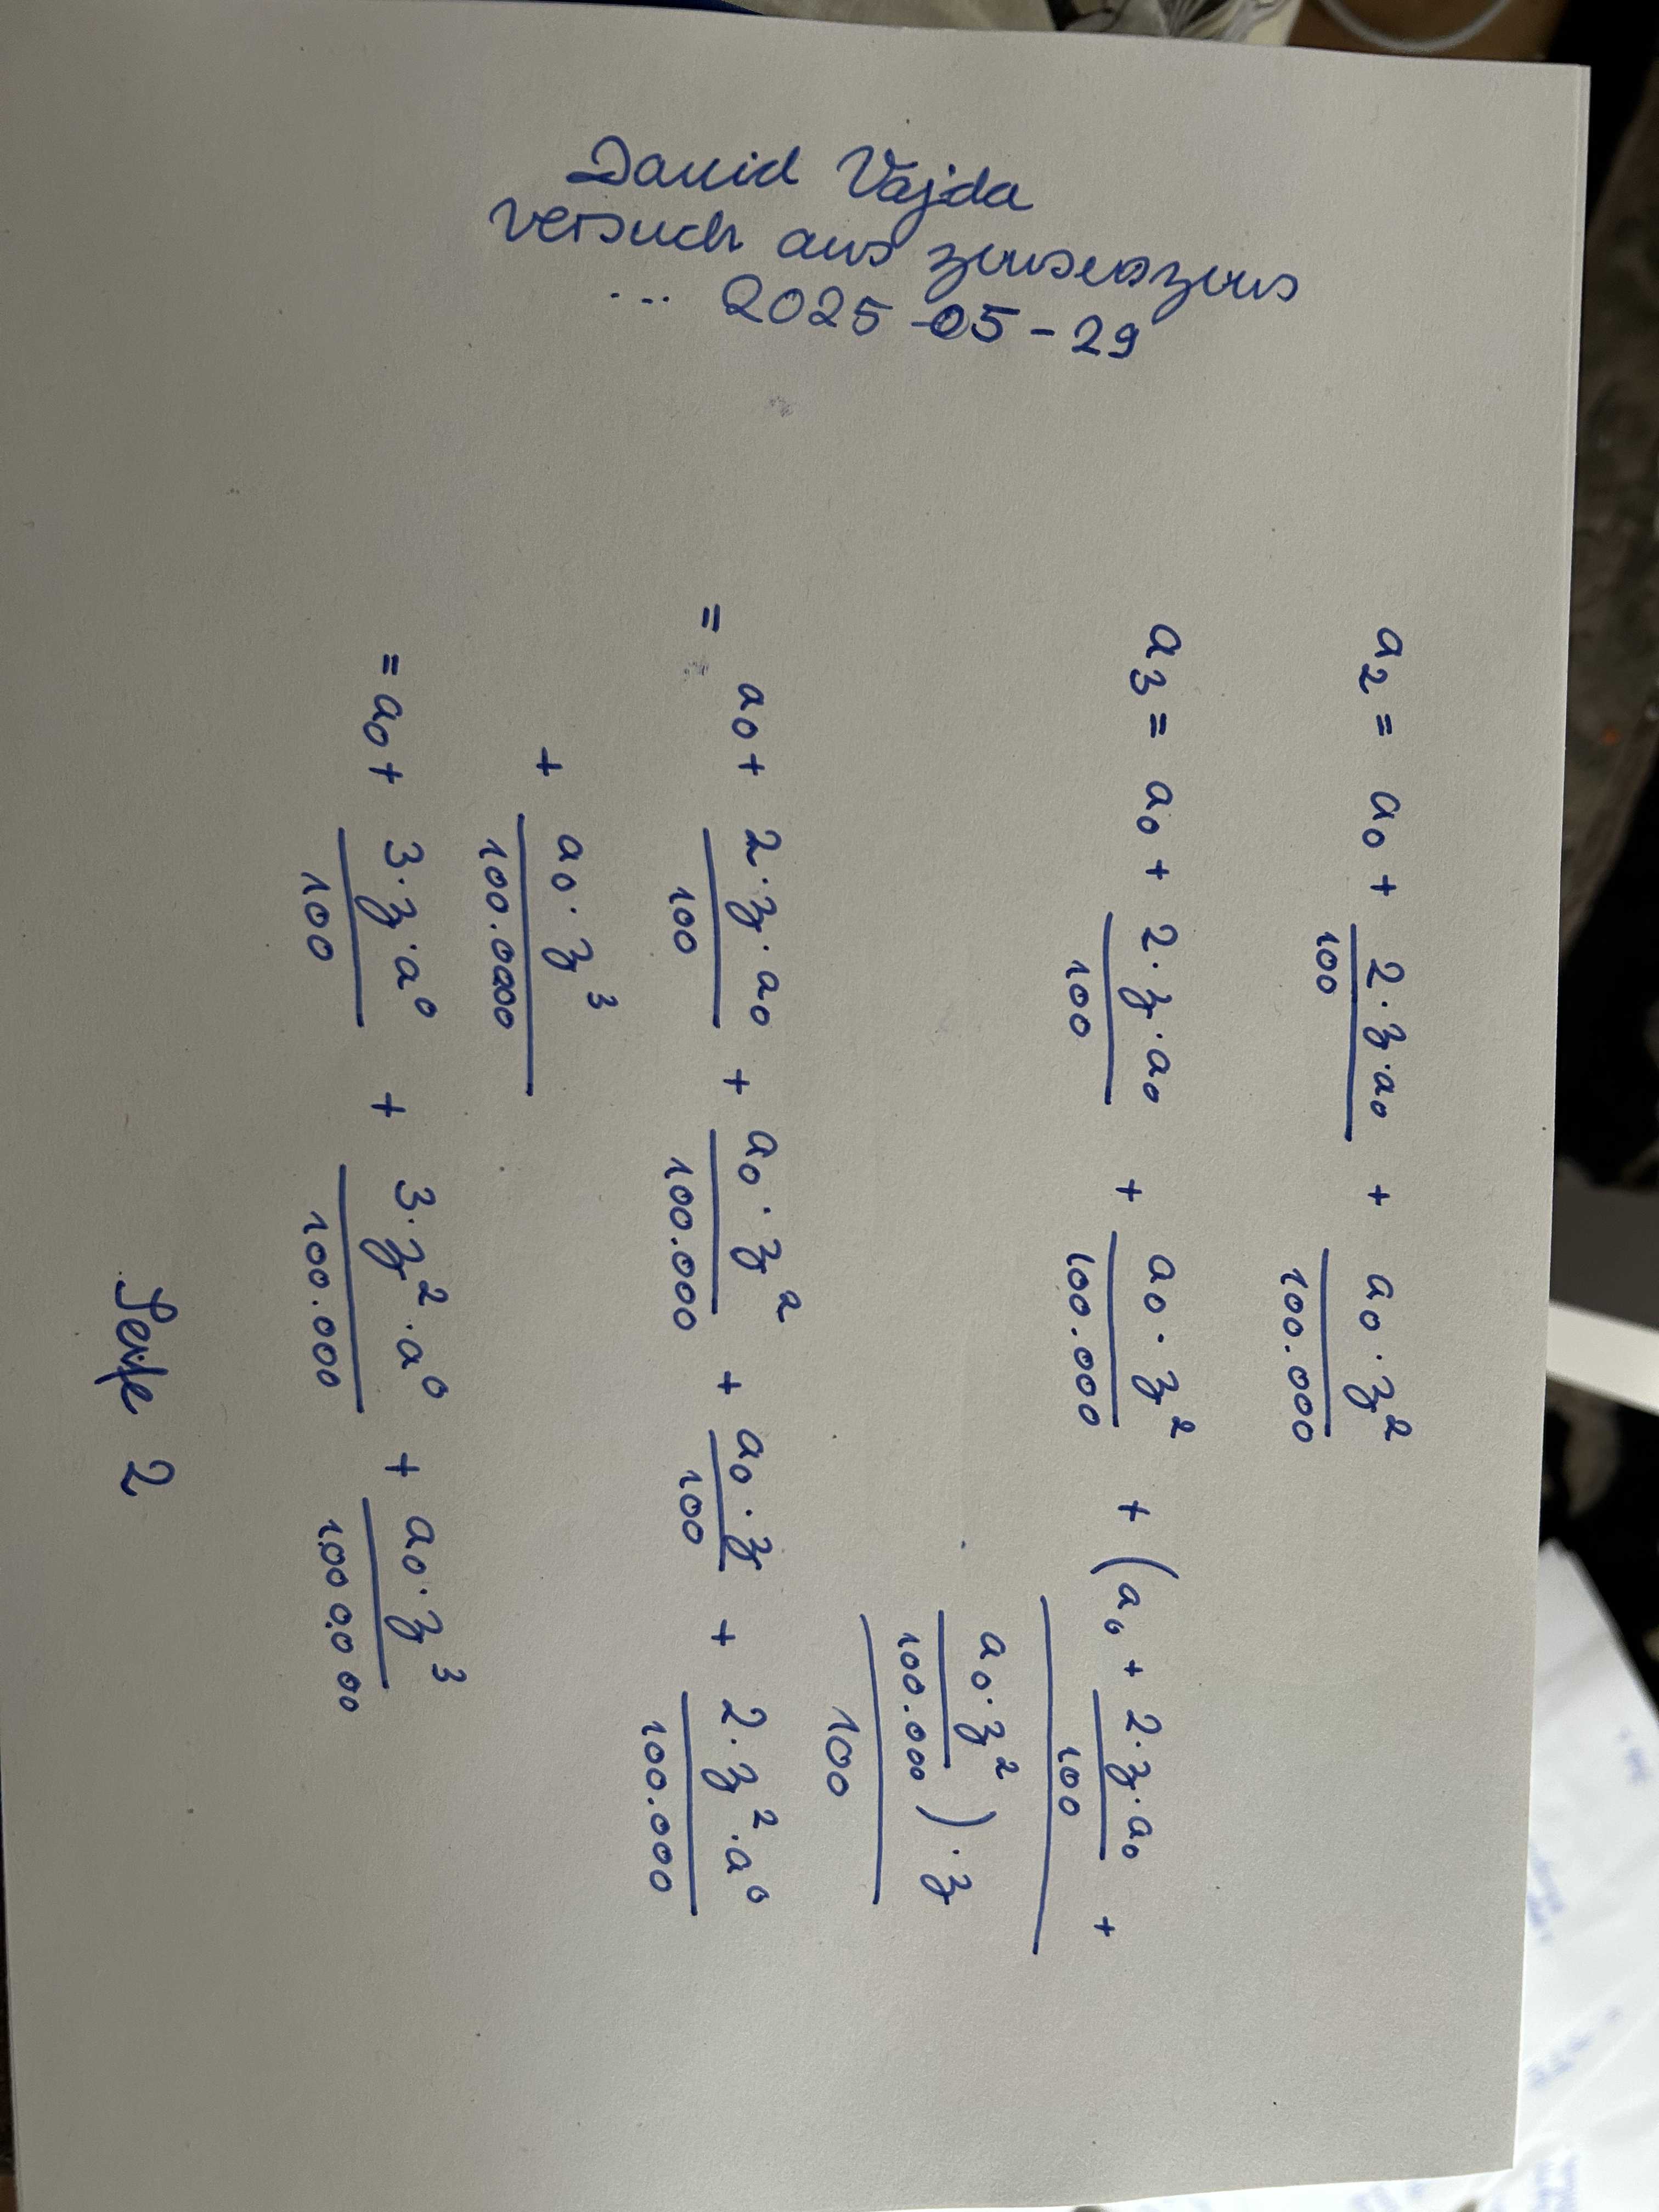 David Vajda
Versuch aus zinseszins
... 2025-05-29
a₂ = a₀ + 2·z·a₀/100 + a₀·z²/100.000
a₃ = a₀ + 2·z·a₀/100 + a₀·z²/100.000 + (a₀ + 2·z·a₀/100 +
a₀·z²/100.000)·z
100
= a₀ + 2·z·a₀/100 + a₀·z²/100.000 + a₀·z/100 + 2·z²·a⁰/100.000
+ a₀·z³/100.0000
= a₀ + 3·z·a⁰/100 + 3·z²·a⁰/100.000 + a₀·z³/1.000.000
Seite 2